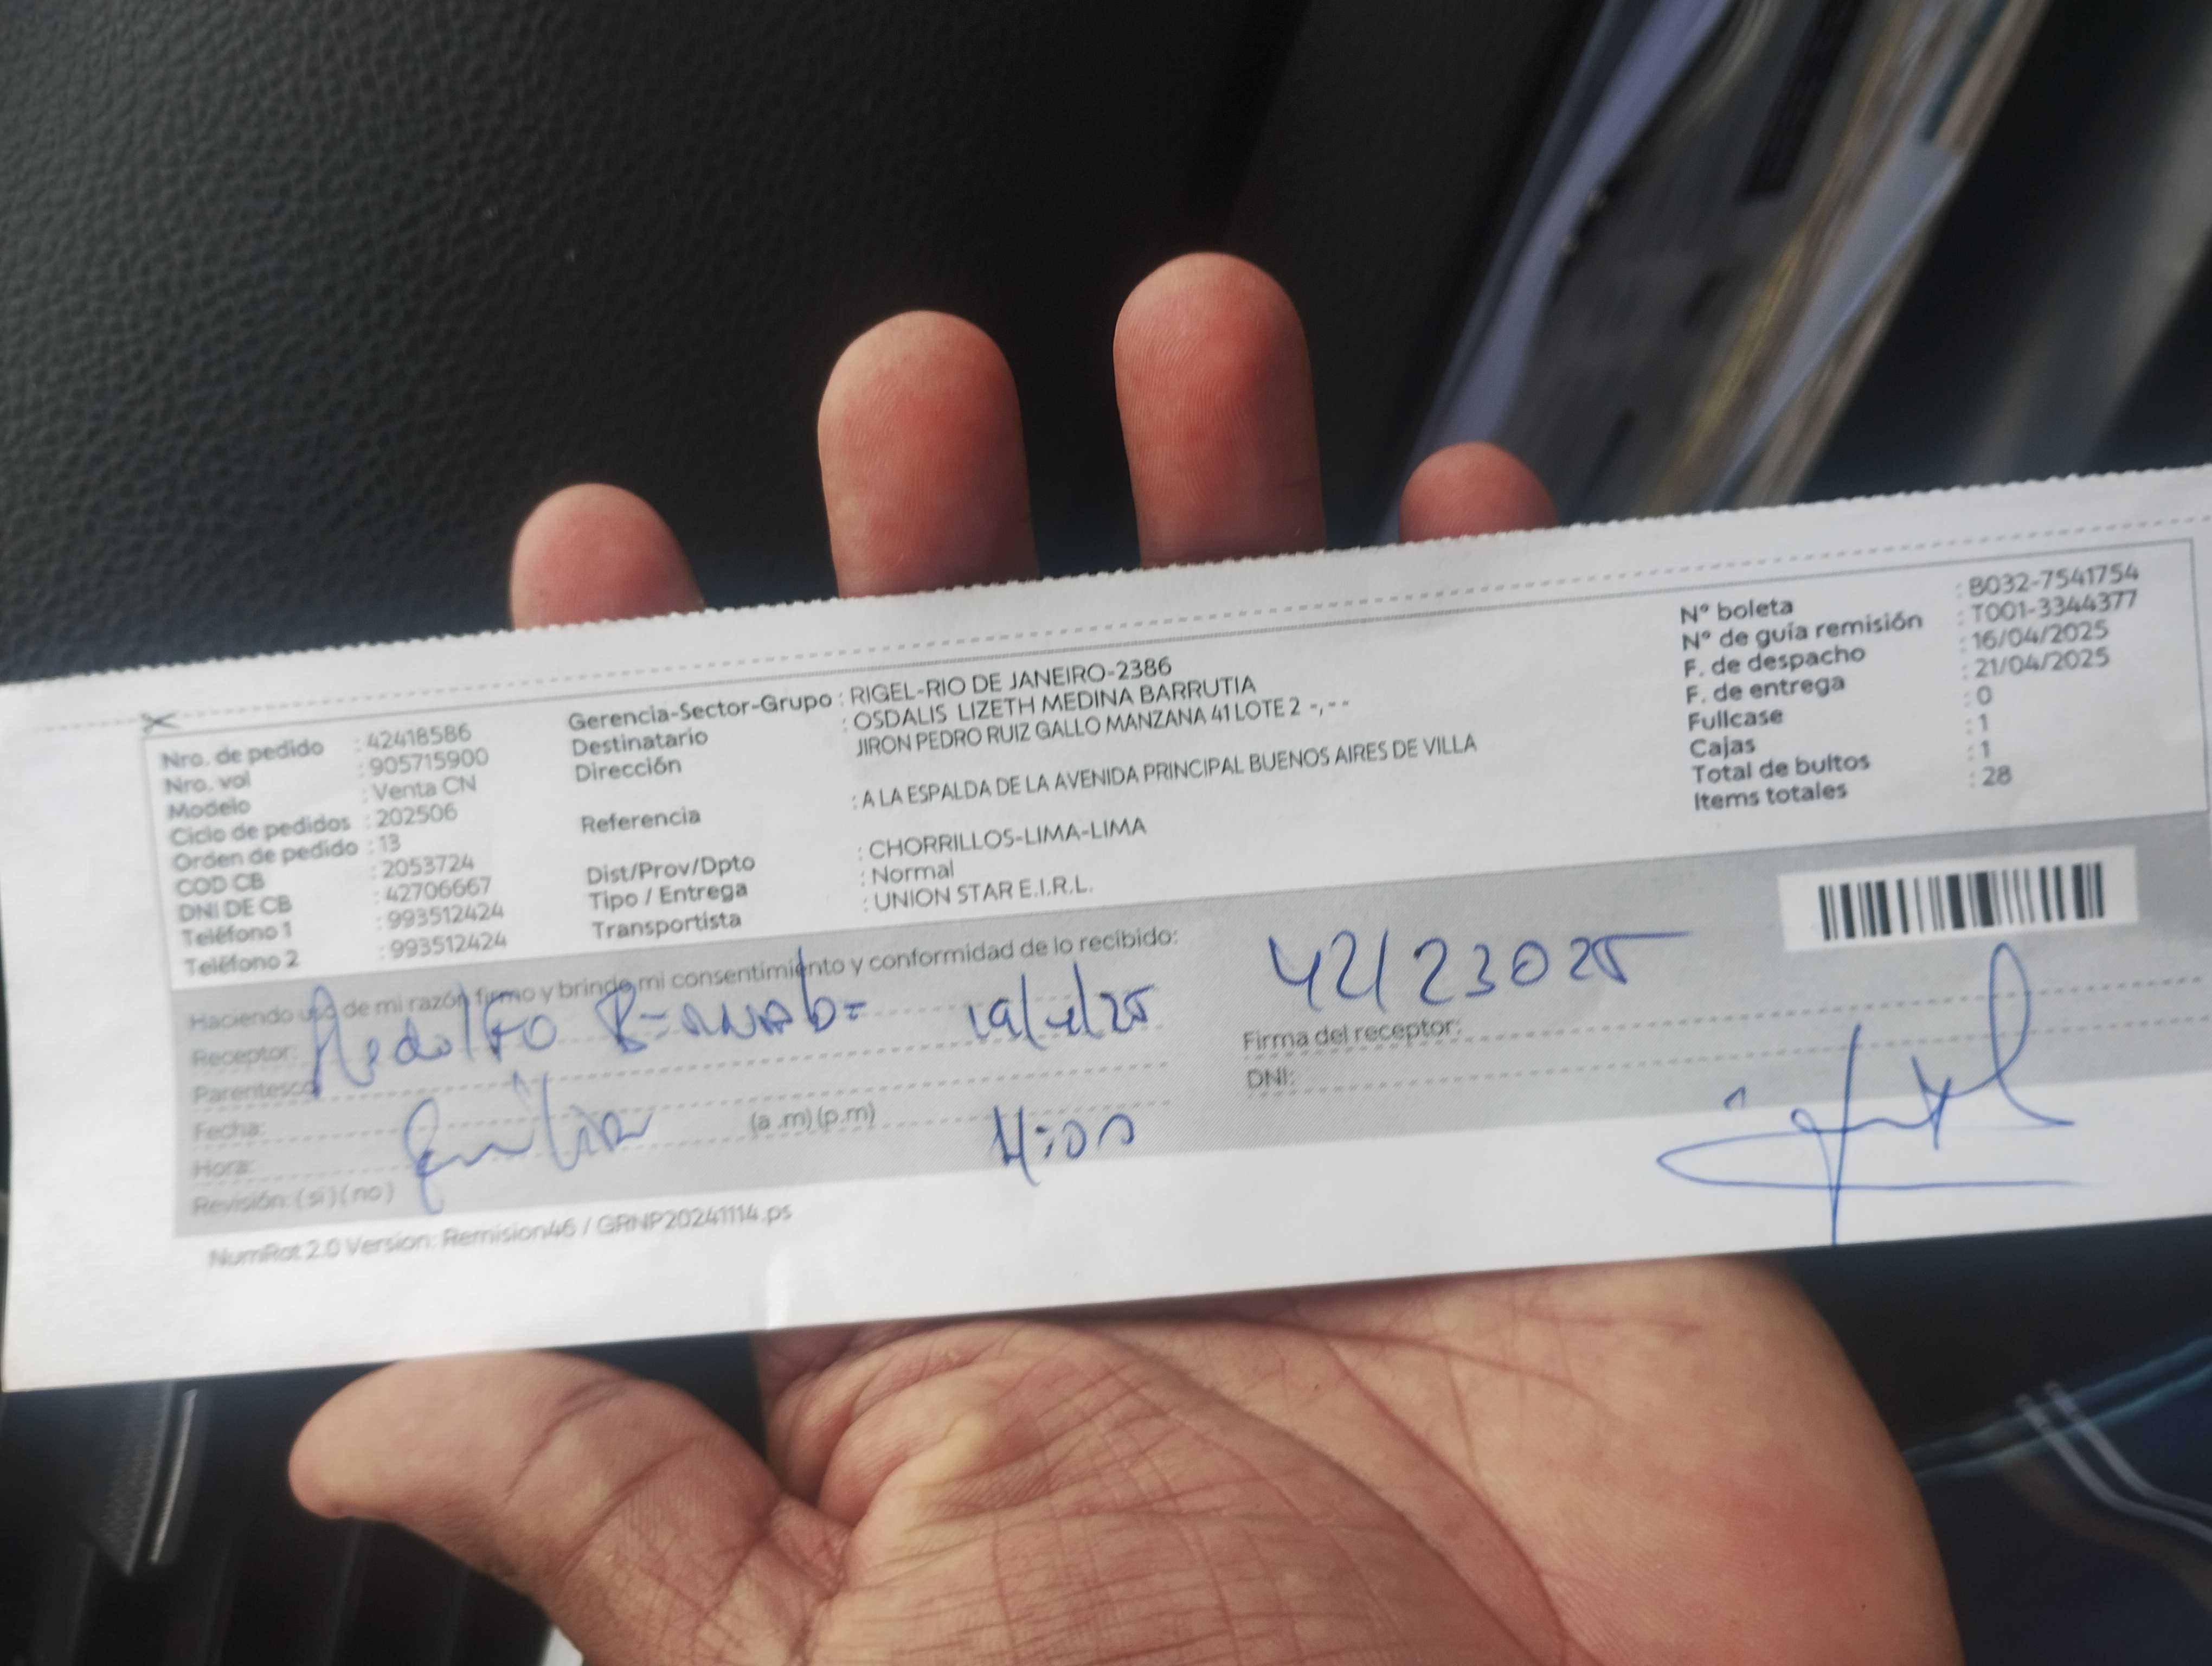 Nro. de pedido : 42418586
Nro. vol : 905715900
Modelo : Venta CN
Ciclo de pedidos : 202506
Orden de pedido : 13
COD CB : 2053724
DNI DE CB : 42706667
Teléfono 1 : 993512424
Teléfono 2 : 993512424
Gerencia-Sector-Grupo : RIGEL-RIO DE JANEIRO-2386
Destinatario : OSDALIS LIZETH MEDINA BARRUTIA
Dirección JIRON PEDRO RUIZ GALLO MANZANA 41 LOTE 2 -,--
Referencia : A LA ESPALDA DE LA AVENIDA PRINCIPAL BUENOS AIRES DE VILLA
Dist/Prov/Dpto : CHORRILLOS-LIMA-LIMA
Tipo / Entrega : Normal
Transportista : UNION STAR E.I.R.L.
Nº boleta : B032-7541754
Nº de guía remisión : T001-3344377
F. de despacho : 16/04/2025
F. de entrega : 21/04/2025
Fullcase : 0
Cajas : 1
Total de bultos : 1
Items totales : 28
Haciendo uso de mi razón firmo y brindo mi consentimiento y conformidad de lo recibido:
Receptor:
Parentesco:
Fecha:
Hora: (a .m) (p.m)
Revisión: ( si ) ( no )
19/4/25
4:00
42123025
Firma del receptor:
DNI:
NumRot 2.0 Version: Remision46 / GRNP20241114.ps